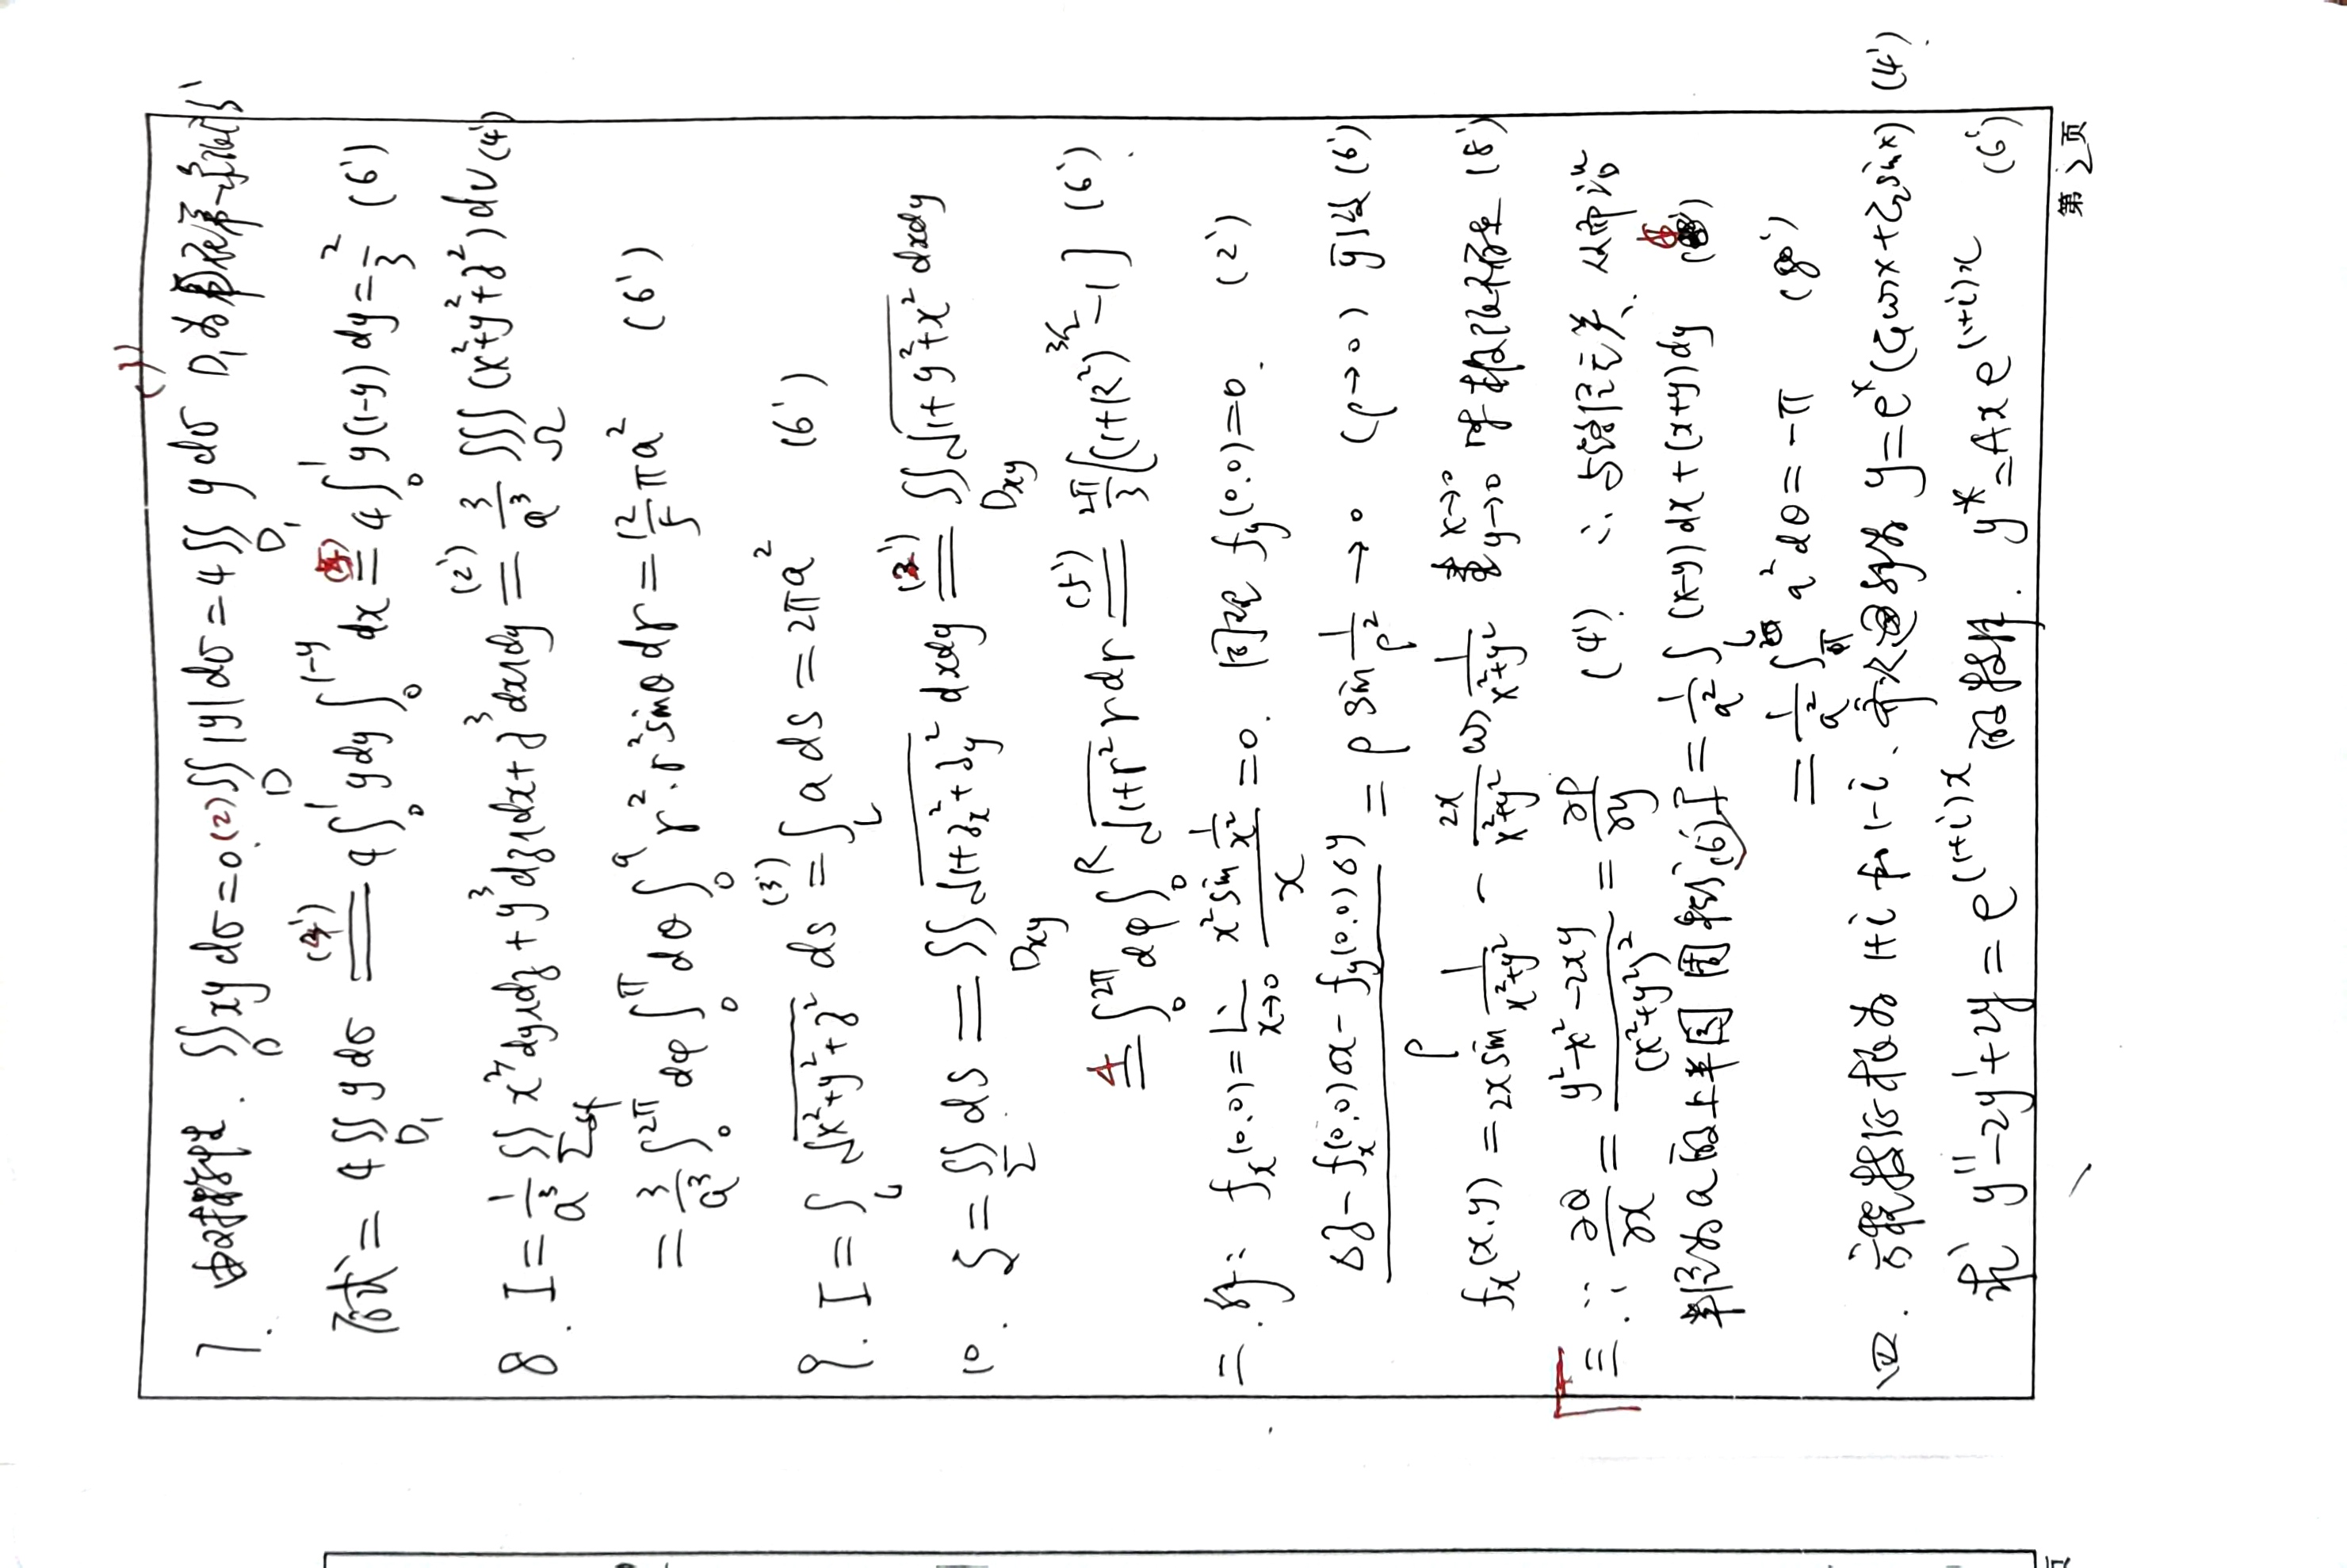 (1')
7. 由对称性. ∬_D xydσ=0.(2') ∬_D |y|dσ=4∬_{D₁} ydσ D₁为D的第一象限部分
原式= 4∬_{D₁} ydσ (4') = 4∫₀¹ ydy∫₀^{1-y} dx = 4∫₀¹ y(1-y)dy=2/3 (6')
8. I=1/a³ ∬_{Σ外} x³dydz+y³dzdx+z³dxdy (2') = 3/a³ ∭_Ω (x²+y²+z²)dv (4')
= 3/a³ ∫₀^{2π} dφ∫₀^π dθ∫₀^a r²·r²sinθdr = 12/5 πa² (6')
9. I=∫_L √(x²+y²+z²) ds (3') = ∫_L a ds = 2πa² (6')
10. S=∬_Σ ds = ∬_{Dxy} √(1+z_x²+z_y²) dxdy = ∬_{Dxy} √(1+y²+x²) dxdy
4 = ∫₀^{2π} dφ∫₀^R √(1+r²) rdr (5') = 2π/3 [(1+R²)^{3/2}-1] (6').
二. f_x(0,0)=lim_{x→0} (x² sin 1/x²)/x =0. 同理 f_y(0,0)=0. (2')
(Δz-f_x(0,0)Δx-f_y(0,0)Δy)/ρ = ρ sin 1/ρ² → 0 (ρ→0) 可微 (6')
f_x(x,y)=2x sin 1/(x²+y²) - 2x/(x²+y²) cos 1/(x²+y²) x→0 y→0 时极限不存在 (8')
三. ∵ ∂Q/∂x = (y²-x²-2xy)/(x²+y²)² = ∂P/∂y (4') ∴与路径无关. 从而沿
半径为a的上半圆周积分(6') I= 1/a² ∫_L (x-y)dx+(x+y)dy
= 1/a² ∫ a²dθ=-π (8')
四. 方程特征根为 1+i 和 1-i. 齐次通解为 y=eˣ(C₁cosx+C₂sinx) (4').
求 y''-2y'+2y=e^{(1+i)x} 的特解. y*=Axe^{(1+i)x} (6')
第2页